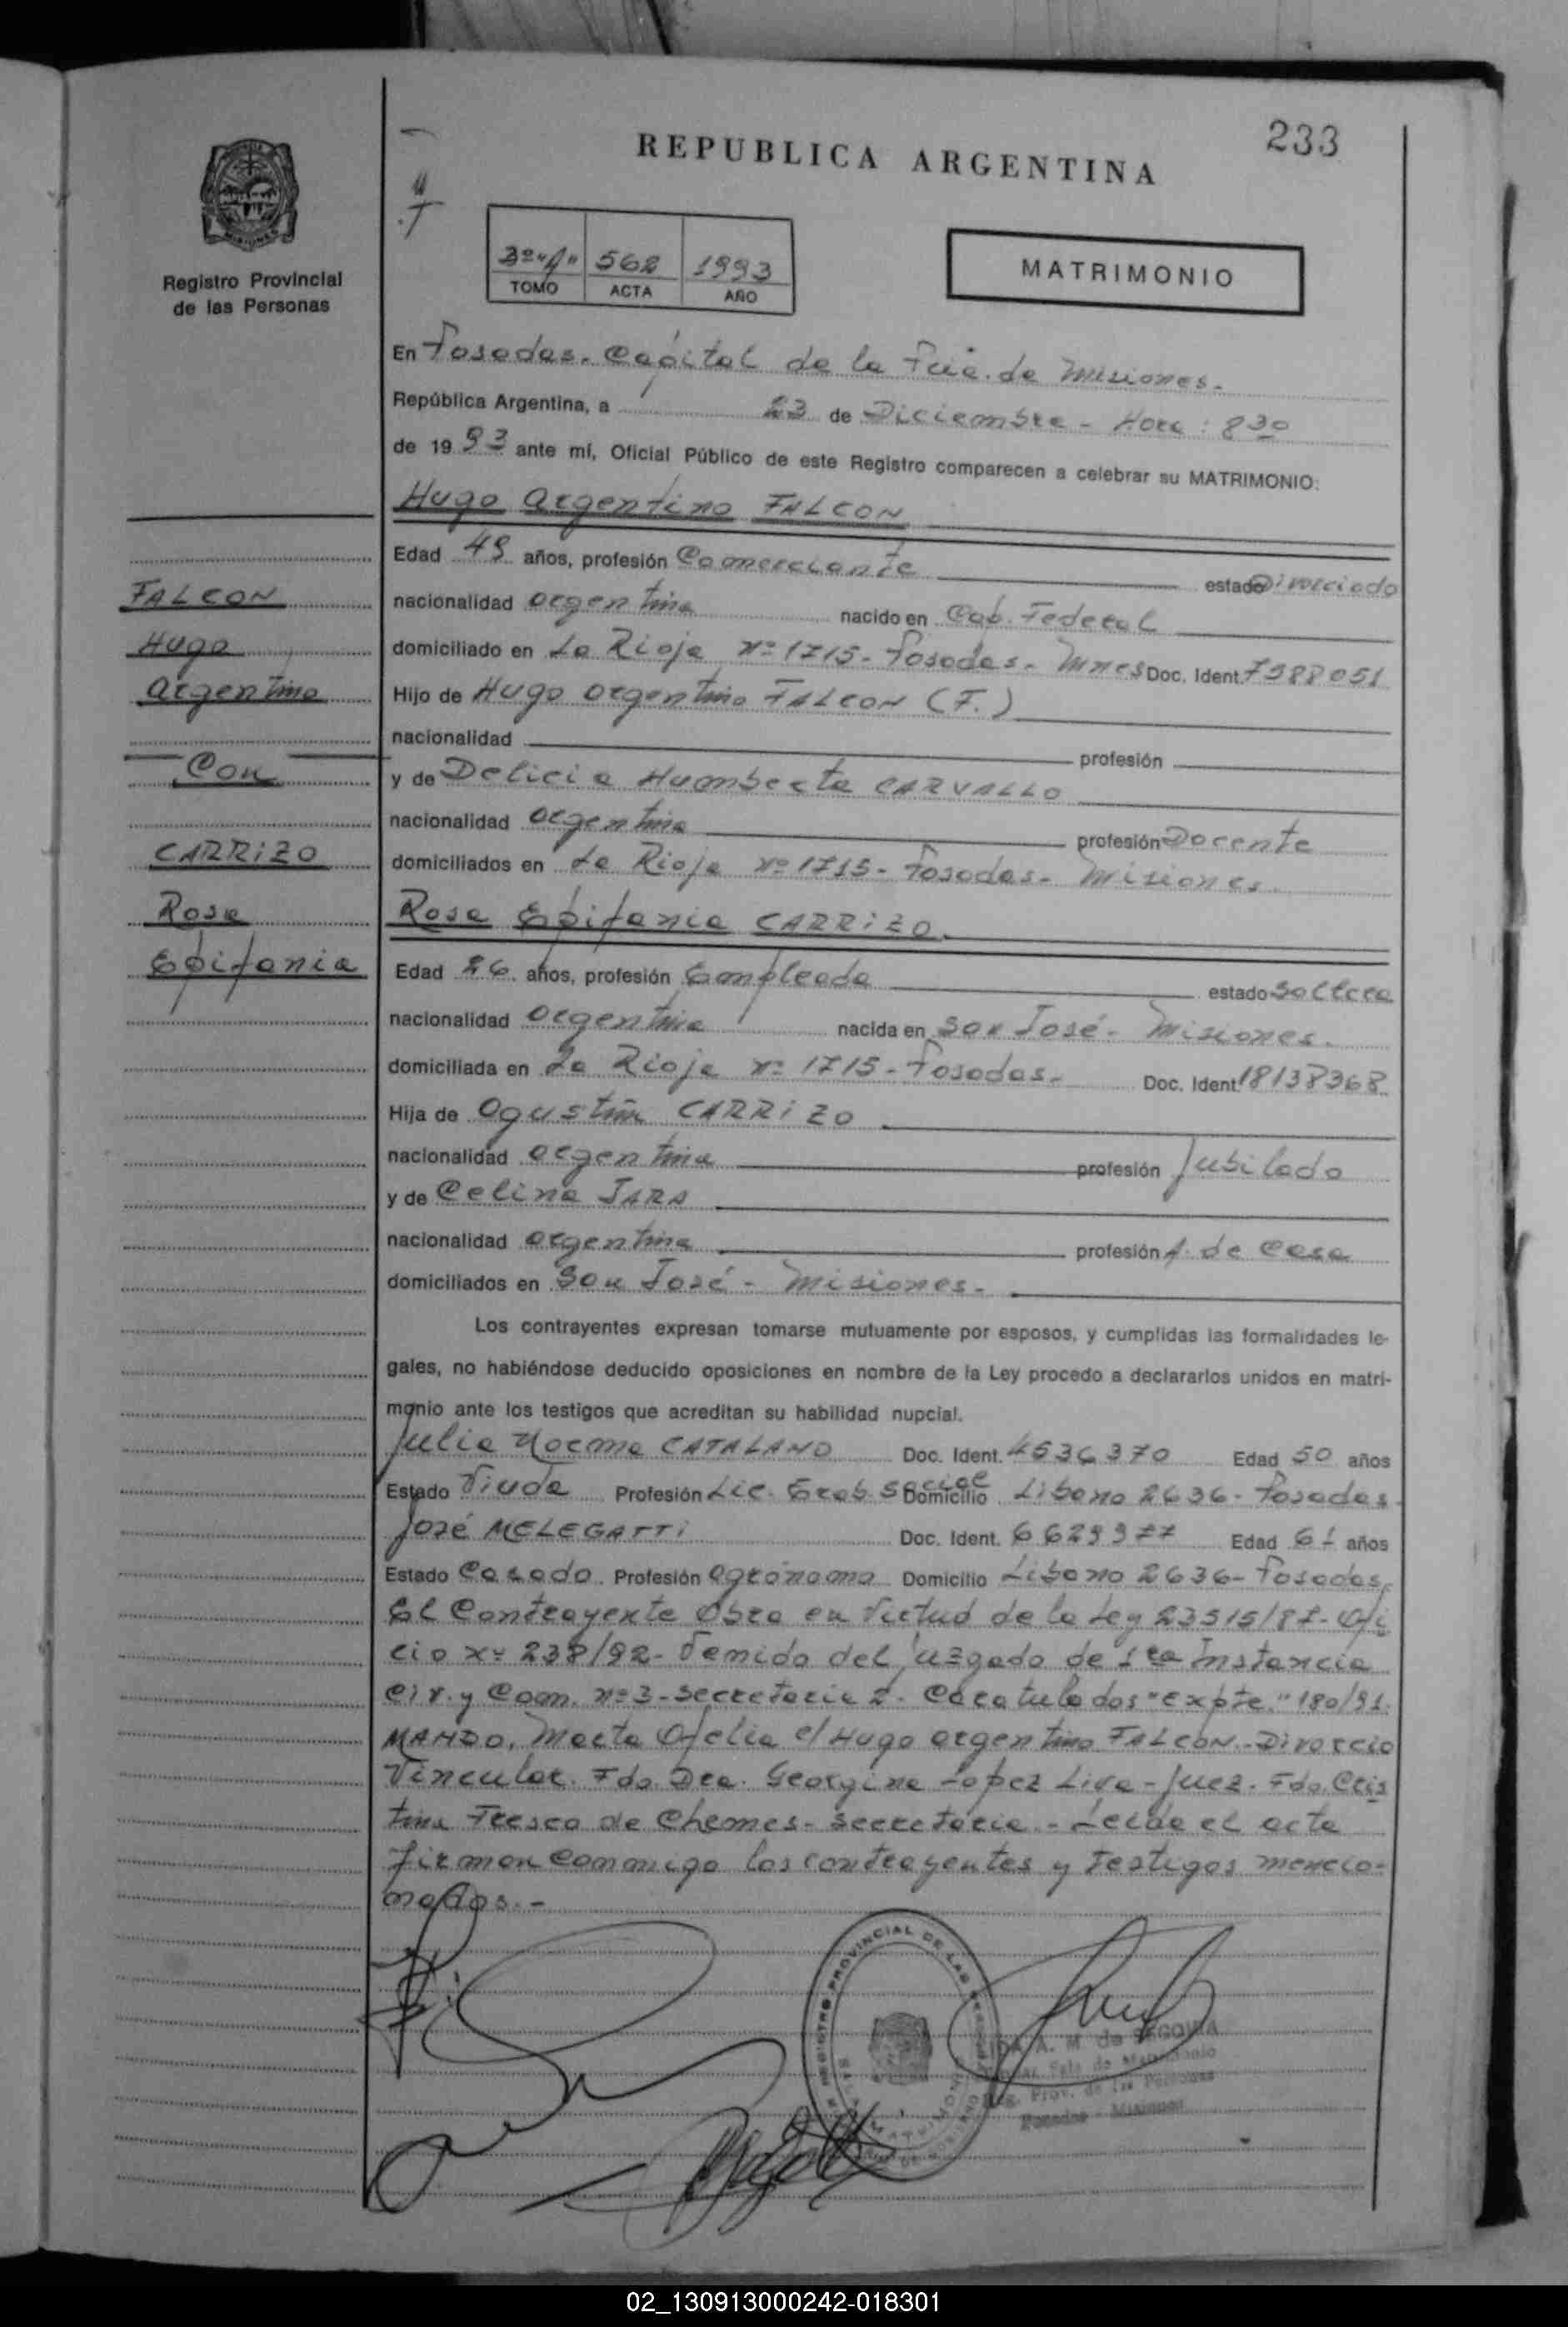 233
REPUBLICA ARGENTINA
MISIONES
Registro Provincial
de las Personas
3º "A" 562 1993
TOMO ACTA AÑO
MATRIMONIO
En Posadas. Capital de la Pcia. de Misiones.
República Argentina, a 23 de Diciembre - Hora: 8 30
de 19 93 ante mí, Oficial Público de este Registro comparecen a celebrar su MATRIMONIO:
Hugo Argentino FALCON
Edad 49 años, profesión Comerciante estado Divorciado
nacionalidad argentina nacido en Cap. Federal
domiciliado en La Rioja Nº 1715- Posadas- Mnes Doc. Ident. 7588051
Hijo de Hugo Argentino FALCON (F.)
nacionalidad profesión
y de Delicia Humberta CARVALLO
nacionalidad argentina profesión Docente
domiciliados en La Rioja Nº 1715- Posadas- Misiones
Rosa Epifania CARRIZO.
Edad 26 años, profesión Empleada estado Soltera
nacionalidad argentina nacida en San José- Misiones.
domiciliada en La Rioja Nº 1715- Posadas- Doc. Ident. 18138368
Hija de Agustín CARRIZO
nacionalidad argentina profesión Jubilado
y de Celina JARA
nacionalidad argentina profesión A. de Casa
domiciliados en San José - Misiones-
FALCON
Hugo
Argentino
Con
CARRIZO
Rosa
Epifania
Los contrayentes expresan tomarse mutuamente por esposos, y cumplidas las formalidades le-
gales, no habiéndose deducido oposiciones en nombre de la Ley procedo a declararlos unidos en matri-
monio ante los testigos que acreditan su habilidad nupcial.
Julia Norma CATALANO Doc. Ident. 4536370 Edad 50 años
Estado Viuda Profesión Lic. Trab. Social Domicilio Libano 2636- Posadas
José MELEGATTI Doc. Ident. 6629977 Edad 61 años
Estado Casado Profesión Agrónomo Domicilio Libano 2636- Posadas
El Contrayente Obra en Virtud de la Ley 23515/87- Ofi
cio Nº 238/92- Venido del Juzgado de 1ra Instancia
Civ. y Com. nº 3- Secretaria 2. Caratulados "Expte." 180/91.
MANDO, Marta Ofelia c/ Hugo Argentino FALCON.- Divorcio
Vincular. Fdo. Dra. Georgina Lopez Liva- Juez. Fdo. Cris
tina Fresco de Chemes- Secretaria.- Leída el acta
firman conmigo los contrayentes y Testigos mencio-
nados.-
REGISTRO PROVINCIAL DE LAS PERSONAS
MATRIMONIO
A. M de SEGOVIA
Sala de Matrimonio
Reg. Prov. de las Personas
Posadas - Misiones
02_130913000242-018301